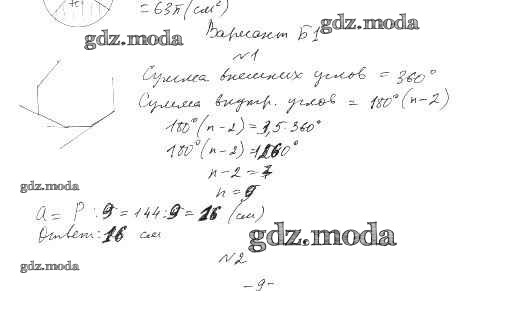 = 63π (см²)
gdz.moda
Вариант Б1
gdz.moda
№1
Сумма внешних углов = 360°
Сумма внутр. углов = 180°(n-2)
180°(n-2) = 3,5·360°
180°(n-2) = 1260°
n-2 = 7
n = 9
gdz.moda
a = P : 9 = 144 : 9 = 16 (см)
Ответ: 16 см
gdz.moda
№2
gdz.moda
-9-